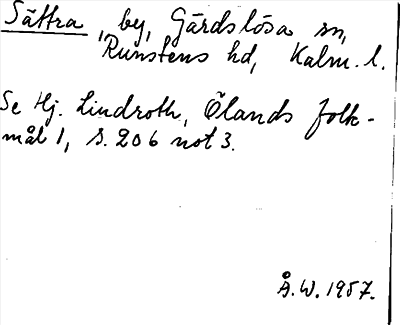 Sättra, by, Gärdslösa sn,
Runstens hd, Kalm. l.
Se Hj. Lindroth, Ölands folk-
mål 1, s. 206 not 3.
Å.W. 1957.